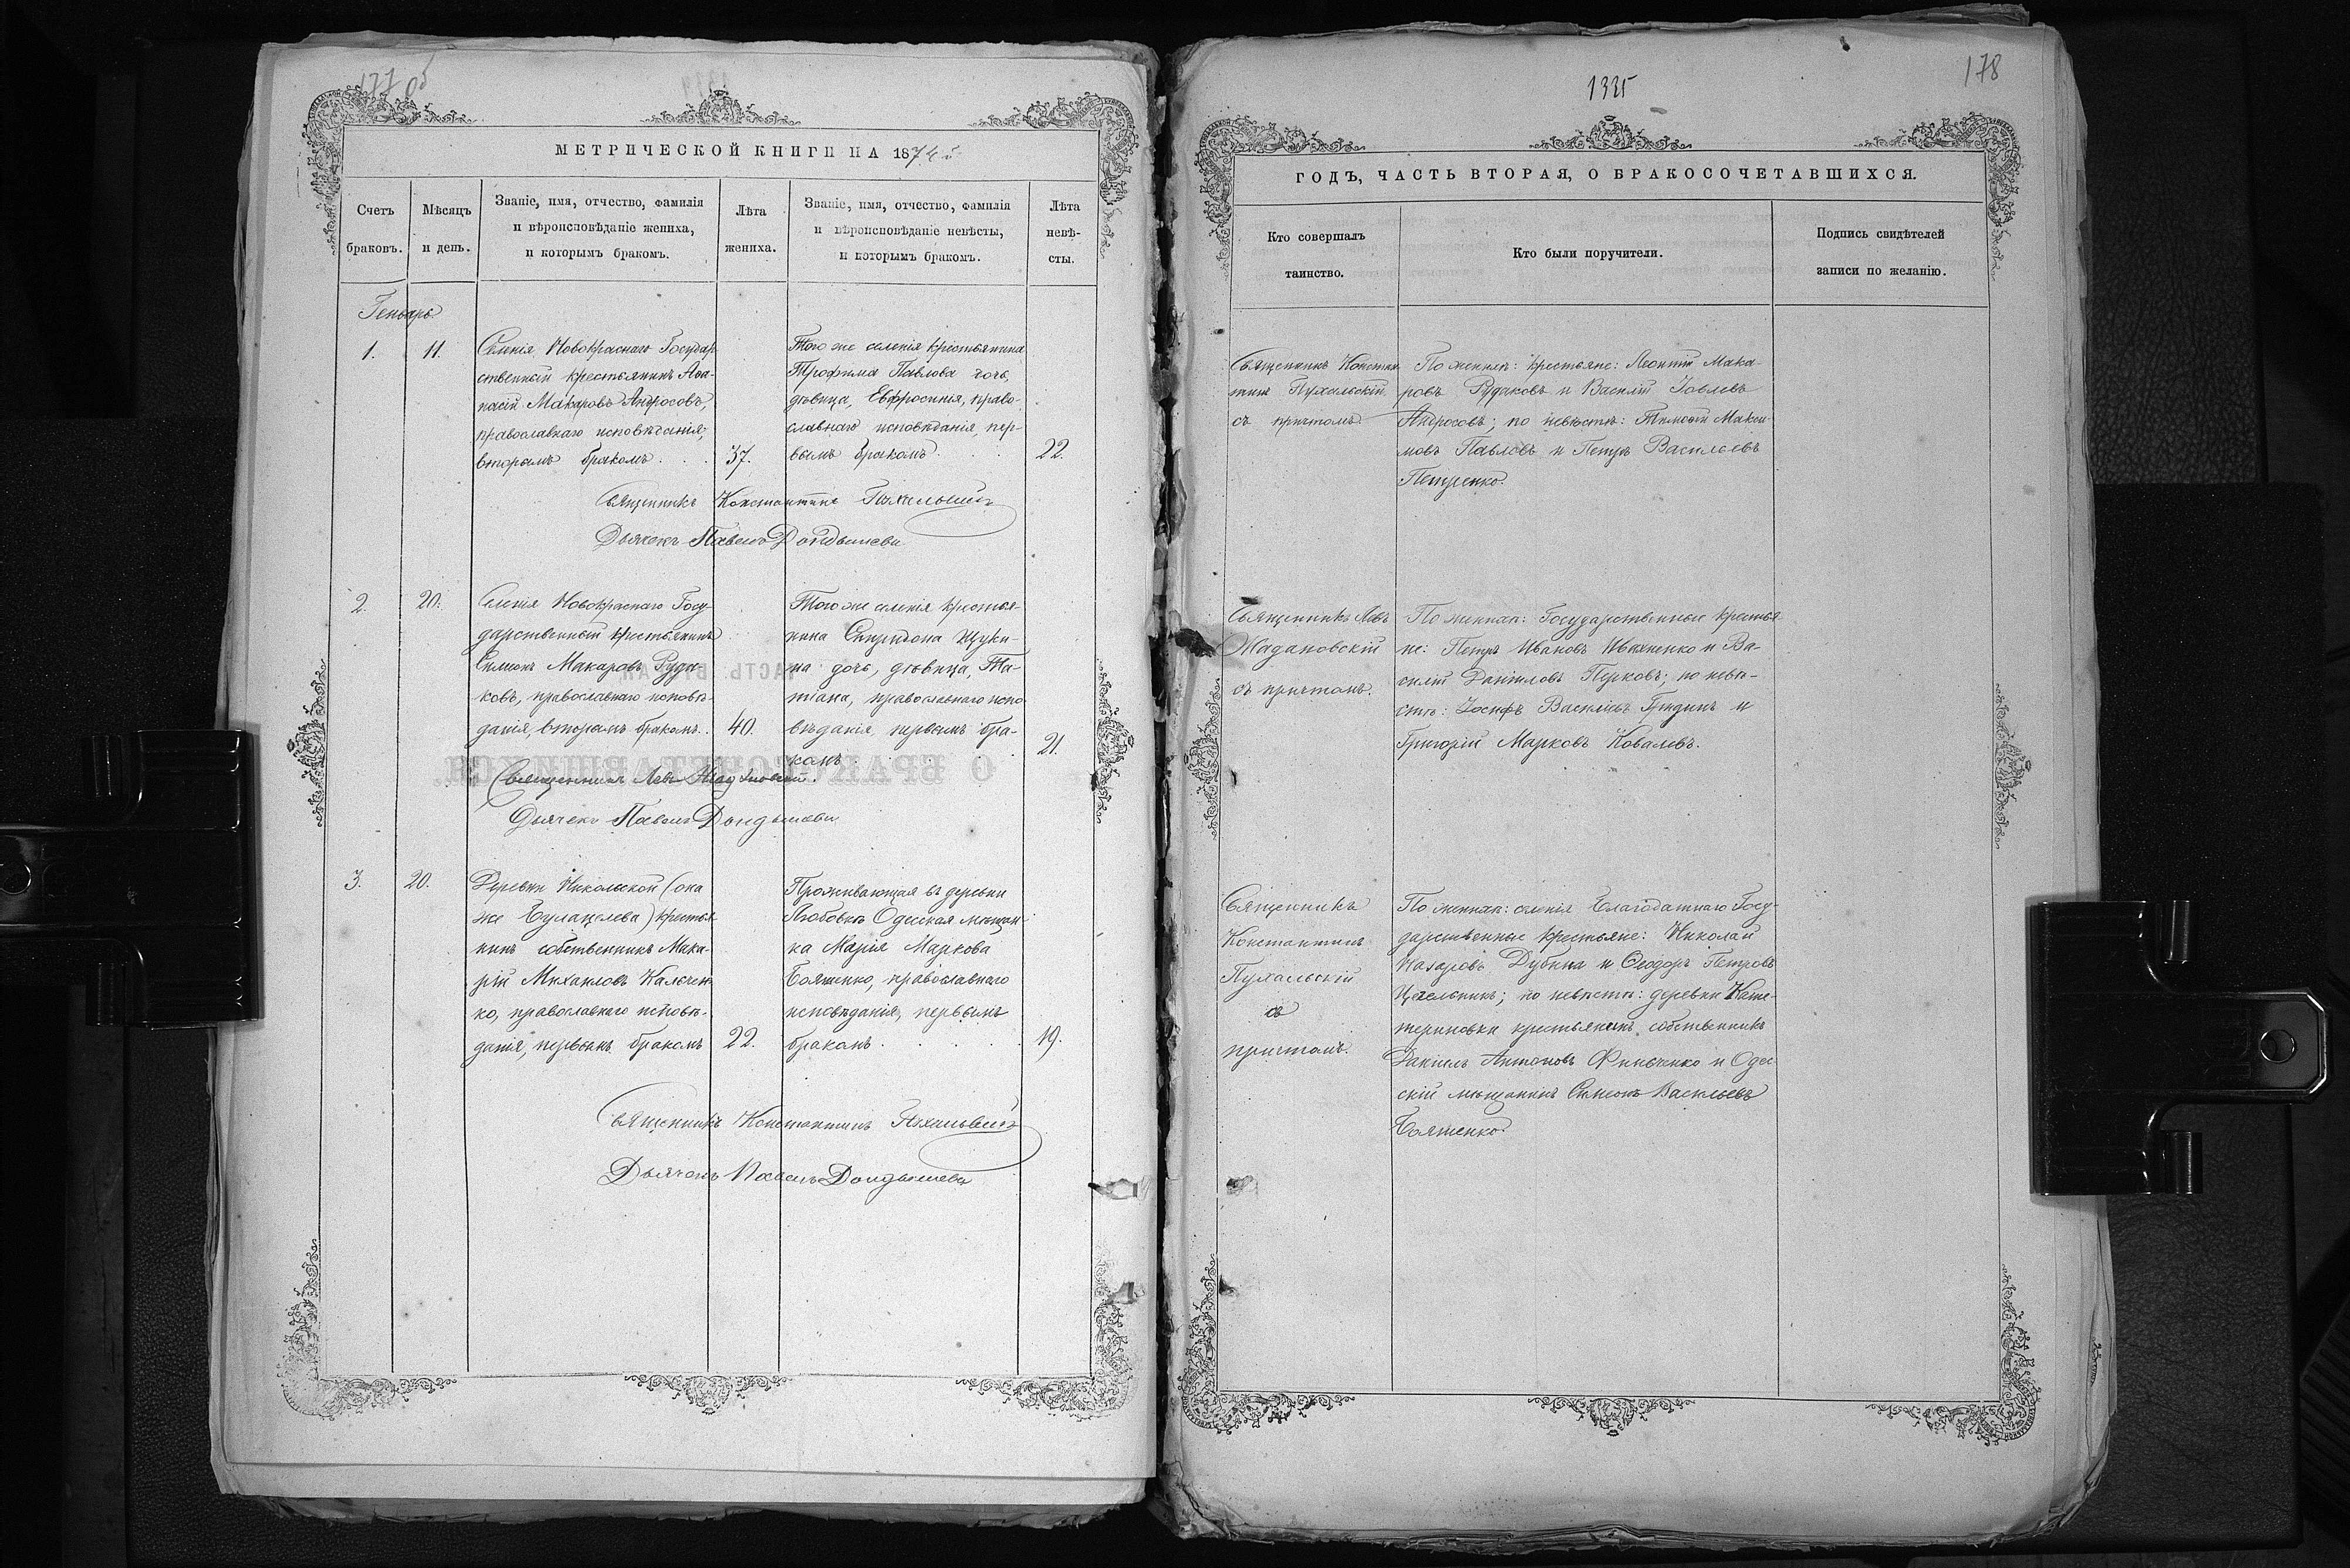 177 об
МЕТРИЧЕСКОЙ КНИГИ НА 1874й
Счетъ
браковъ.
Мѣсяцъ
и день.
Званіе, имя, отчество, фамилія
и вѣроисповѣданіе жениха,
и которымъ бракомъ.
Лѣта
жениха.
Званіе, имя, отчество, фамилія
и вѣроисповѣданіе невѣсты,
и которымъ бракомъ.
Лѣта
невѣ-
сты.
Генварь
1.
11.
Селенія Новокраснаго Государ
ственный крестьянинъ Аѳа-
насій Макаровъ Андросовъ,
православнаго исповѣданія,
вторымъ бракомъ . .
37.
Того же селенія крестьянина
Трофима Павлова дочь,
дѣвица, Евфросинія, право-
славнаго исповѣданія, пер-
вымъ бракомъ . .
22.
Священникъ Константинъ Пухальскій
Дьячекъ Павелъ
2.
20.
Селенія Новокраснаго Госу-
дарственный крестьянинъ
Симеонъ Макаровъ Руда-
ковъ, православнаго исповѣ-
данія, вторымъ бракомъ. .
40.
Того же селенія крестья-
нина Спиридона Щуки-
на дочь, дѣвица, Та-
тіана, православнаго испо
вѣданія, первымъ бра-
комъ . .
21.
Священникъ Левъ Жадановскій.
Дьячекъ Павелъ
3.
20.
Деревни Никольской (она
же Булацелева) крестья
нинъ собственникъ Мака-
рій Михаиловъ Калючен
ко, православнаго исповѣ-
данія, первымъ бракомъ
22.
Проживающая въ деревни
Любовкѣ Одесская мѣщан-
ка Марія Маркова
Бояшенко, православнаго
исповѣданія, первымъ
бракомъ . . . .
19.
Священникъ Константинъ Пухальскій
Дьячекъ Павелъ
1335
178
ГОДЪ, ЧАСТЬ ВТОРАЯ, О БРАКОСОЧЕТАВШИХСЯ.
Кто совершалъ
таинство.
Кто были поручители.
Подпись свидѣтелей
записи по желанію.
Священникъ Констан
тинъ Пухальскій
съ причтомъ.
По женихѣ: крестьяне: Леонтій Мака-
ровъ Рудаковъ и Василій Іовлевъ
Андросовъ; по невѣстѣ: Тимофей Макси
мовъ Павловъ и Петръ Васильевъ
Петренко.
Священникъ Левъ
Жадановскій
съ причтомъ.
По женихѣ: Государственные крестья
не: Петръ Ивановъ Ивахненко и Ва-
силій Даніиловъ Перковъ; по невѣ-
стѣ: Іосифъ Васильевъ Гридинъ и
Григорій Марковъ Ковалевъ.
Священникъ
Константинъ
Пухальскій
съ
причтомъ.
По женихѣ: селенія Благодатнаго Госу-
дарственные крестьяне: Николай
Назаровъ Дубина и Ѳеодоръ Петровъ
по невѣстѣ: деревни Кате-
риновки крестьянинъ собственникъ
Даніилъ Антоновъ Финченко и Одес
скій мѣщанинъ Симеонъ Васильевъ
Бояшенко.